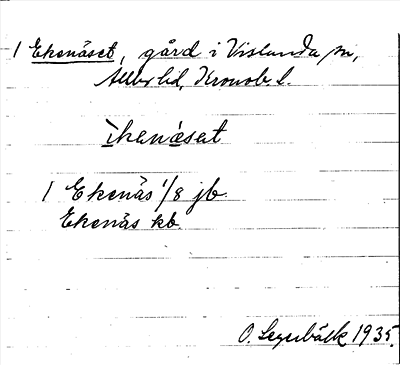 1 Ekenäset, gård i Vislanda sn,
Allbo hd, Kronob. l.
ìkenæ̀sat
1 Ekenås 1/8 jb
Ekenås kb
O. Segerbäck 1935.